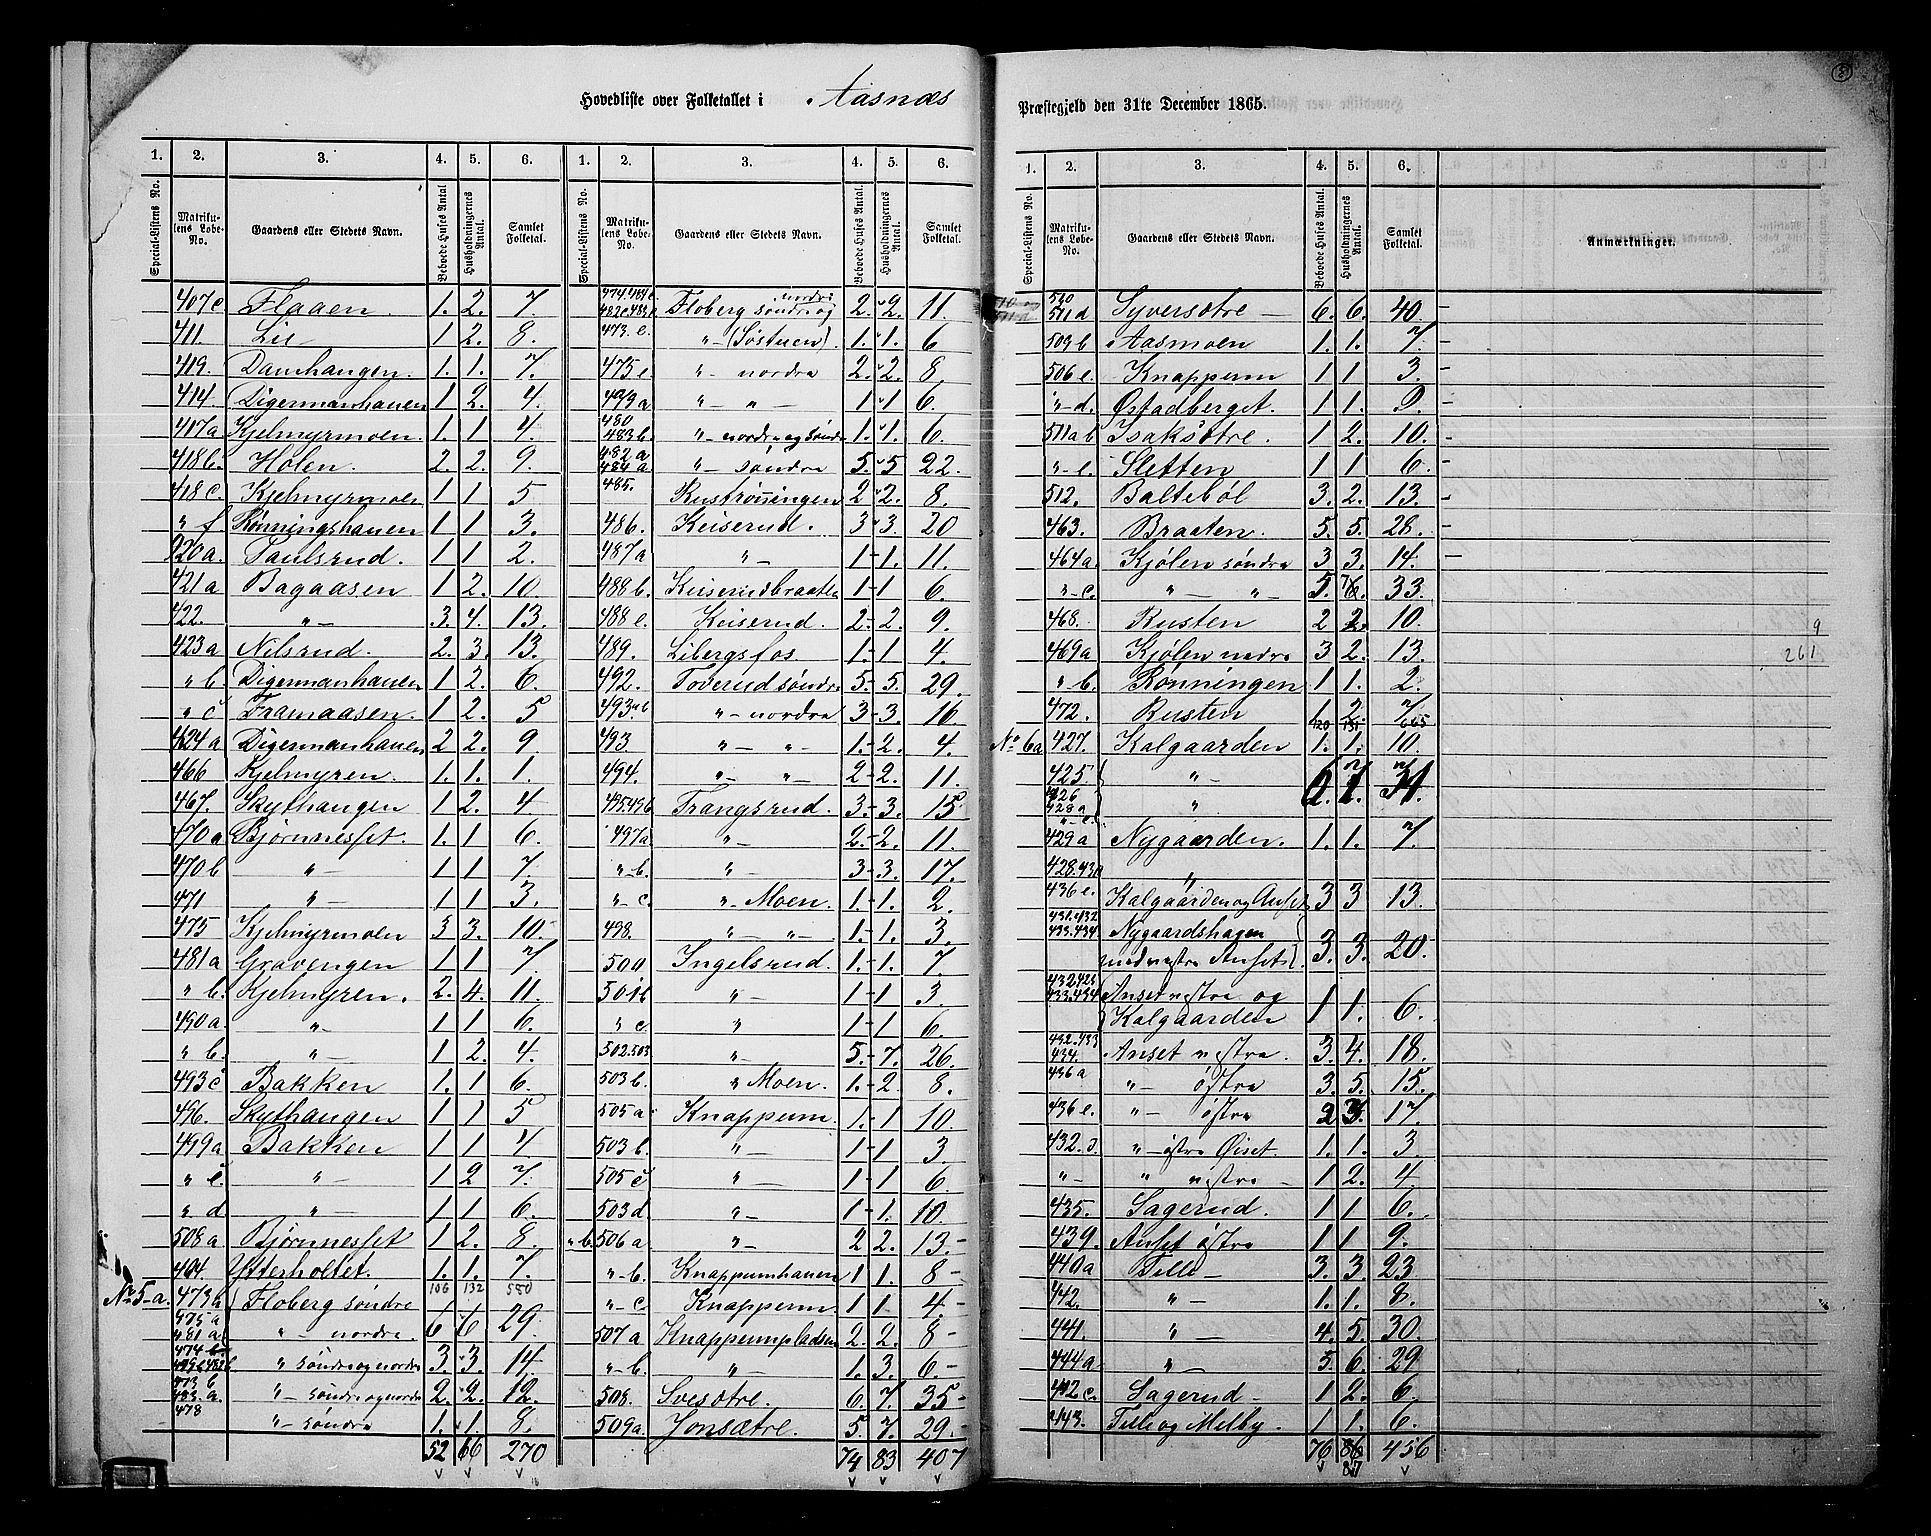 Hovedliste over Folketallet i Aasnæs Præstegjeld den 31te December 1865.
1. 2. 3. 4. 5. 6. 1. 2. 3. 4. 5. 6.
Special-Listens No. Matrikulens Løbe-No. Gaardens eller Stedets Navn. Beboede Huses Antal Husholdningernes Antal. Samlet Folketal. Special-Listens No. Matrikulens Løbe-No. Gaardens eller Stedets Navn. Beboede Huses Antal. Husholdningernes Antal. Samlet Folketal.
407c Flaaen 1. 2. 7.
411. Lie 1 2. 8.
419. Damhaugen. 1. 1. 7.
414 Digermanhauen 1 2. 4.
417a Kjelmyrmoen. 1. 1 4.
418b. Holen. 2. 2. 9.
418c. Kjelmyrmoen 1 1 5
" f Rønningshauen 1 1 3.
420a. Paulsrud. 1 1 2.
421a Bagaasen 1 2. 10.
422. " — 3. 4. 13.
423a Nilsrud. 2. 3. 13.
" b. Digermanhauen 1 2. 6.
" c Framaasen. 1 2. 5
424a Digermanhauen 2 2. 9.
466 Kjelmyren. 1. 1. 1.
467. Skythaugen 1 2. 4
470a Bjørnnesset. 1. 1 6.
470b " — 1 1 7.
471 " — 1 1 3.
475 Kjelmyrmoen 3 3. 10.
481a Gravengen 1 1 7.
" b. Kjelmyren. 2. 4. 11.
490a. " — 1 1 6.
" b. " — 1 2. 4.
493c Bakken 1. 1 6.
496. Skythaugen 1 1 5
499a Bakken 1 1 4.
" c. " — 1 2 7.
" d " — 1 1 6.
508a Bjørnnesset 1 2. 8.
404. Ytterholtet. 1. 1. 7.
106 132 550
No 5-a. 473a Floberg søndre
475a
481a " — nordre. 6 6 29.
474
" søndre og nordre 3. 3. 14.
473b
483.a. " — søndre og nordre 2. 2. 12.
478 " — søndre 1. 1. 8.
52 66 270
474.484c
482c.483 Floberg søndre og nordre 2. 2. 11.
473.e. " — (Søstuen). 1. 1. 6
475e. " — nordre 2. 2. 8.
493a " — " — 1 1 6.
480
483b. " — nordre og søndre 1. 1. 6.
482a
484a " — søndre 5. 5 22.
485. Rustrønningen 2 2. 8.
486. Keiserud. 3 3. 20
487a " — 1 1. 11.
488b. Keiserudbraaten 1 1 6.
488e. Keiserud. 2. 2. 9.
489. Libergsfos 1. 1 4.
492. Toverud søndre 5. 5. 29.
493ab " — nordre 3 3. 16.
493 " — " — 1. 2. 4.
494. " — " — 2 2. 11.
495.496 Trangsrud. 3. 3. 15
497a " — 2. 2. 11.
" b. " — 3 3. 17.
" c. " — Moen. 1. 1. 2.
498. " — " — 1. 1. 3.
500 Ingelsrud. 1. 1. 7.
501b " — 1 1 3.
" c. " — 1 1 6.
502.503 " — 5. 7. 26.
503b. " Moen. 1. 2 8.
505a Knappum 1. 1 10.
503b. " — 1 1 3
505c " — 1 1 6
503d. " — 1 1. 10.
" b. 506a " — 2 2. 13.
" b. Knappumhauen 1 1. 8
" c. Knappum 1 1 4
507a Knappumpladsen 2. 2. 8
" b. " — 1. 3. 6
508. Svesøtre. 6. 7. 35
509a. Jonsætre. 5. 7. 29
74 83 407
1. 2. 3. 4. 5. 6.
Special-Listens No. Matrikulens Løbe-No. Gaardens eller Stedets Navn. Beboede Huses Antal. Husholdningernes Antal. Samlet Folketal. Anmærkninger.
510
511d Syversøtre — 6. 6. 40.
509b Aasmoen 1. 1. 7.
506e. Knappum 1 1 3.
" d. Østadberget. 1 1. 9.
511ab Isaksøtre. 1 2. 10.
" e. Sletten 1 1 6.
512. Baltebøl 3. 2. 13.
463. Braaten 5. 5. 28.
464a Kjølen søndre 3 3. 14.
" c. " — " — 5. 33.
468. Rusten 2 2. 10.
469a Kjølen nedre 3 2. 13. 9 261
" b. Rønningen 1 1. 2.
472. Rusten 1 2. 7
120 131 665
No 6a 427. Kalgaarden 1. 1. 10.
425. " — 6. 7. 31.
426
428a " —
" c.
429a Nygaarden. 1. 1. 7.
428.430 "
436e. Kalgaarden og Anset 3 3 13.
431.432
433.434 Nygaardshagen
med vestre Anset 3. 3. 20.
432.428
433.434 Anset vestre og
Kalgaarden 1 1. 6.
432.433
434. Anset vestre. 3. 4. 18.
436a " — østre 3. 5. 15.
436e. " — østre 2 3. 17.
432.d. " — østre Øiset. 1. 1. 3.
" — " vestre 1 2. 4.
435. Sagerud. 1 1 6.
439. Anset østre 1 1 9.
440a Telle 3. 3. 23
442. " — 1. 1. 8.
441. " — 4. 5. 30.
444a " — 5. 6. 29
442c. Sagerud 1 2. 6.
443. Telle og Melby. 1 1. 6.
76 86 456
87